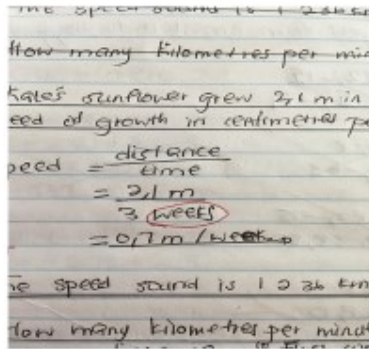 How many kilometres per min
Kate's sunflower grew 2,1 m in
eed of growth in centimetres pe
peed = distance
time
= 2,1 m
3 weeks
= 0,7 m /
e speed sound is 1 236 km
How many kilometres per minut